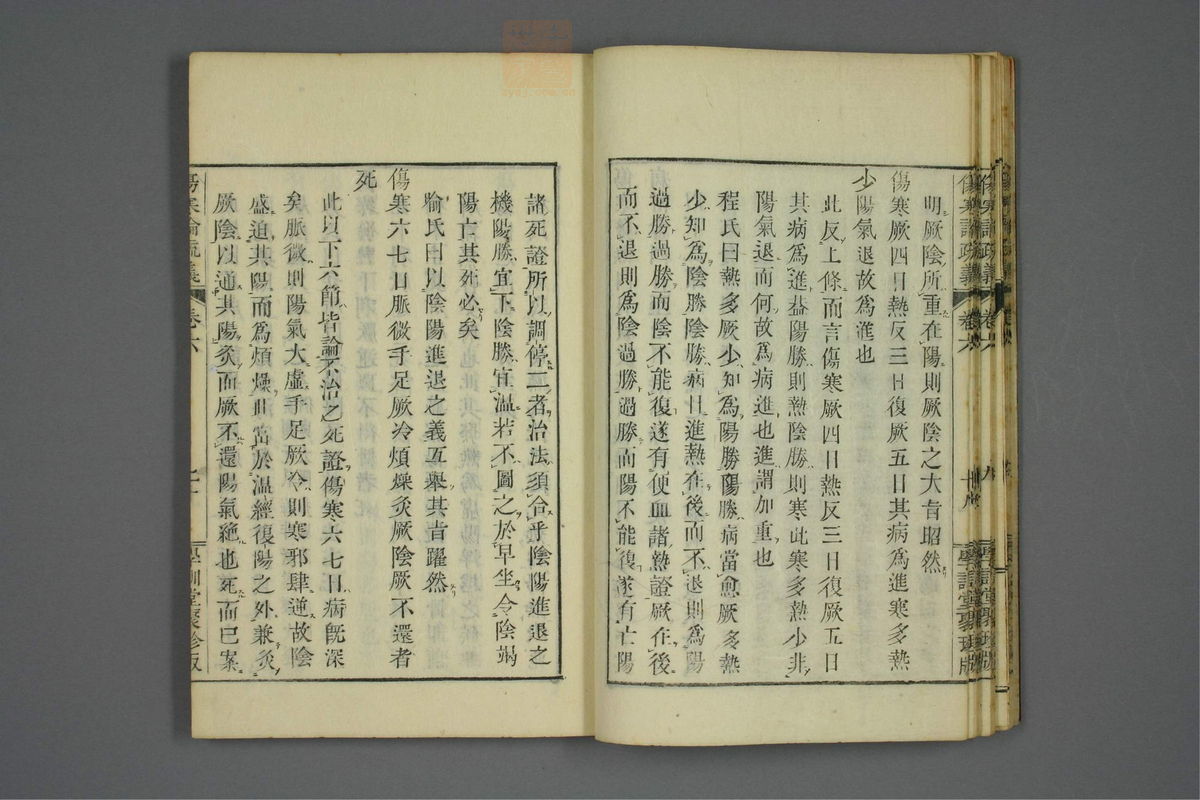 明厥陰所重在陽則厥陰之大旨昭然
傷寒厥四日熱反三日復厥五日其病爲進寒多熱
少陽氣退故爲進也
此反上條而言傷寒厥四日熱反三日復厥五日
其病爲進益陽勝則熱陰勝則寒此寒多熱少非
陽氣退而何故爲病進也進謂加重也
程氏曰熱多厥少知爲陽勝陽勝病當愈厥多熱
少知爲陰勝陰勝病日進熱在後而不退則爲陽
過勝過勝而陰不能復遂有便血諸熱證厥在後
而不退則爲陰過勝過勝而陽不能復遂有亡陽
諸死證所以調停二者治法須合乎陰陽進退之
機陽勝宜下陰勝宜溫若不圖之於早坐令陰竭
陽亡其死必矣
喻氏曰以陰陽進退之義互舉其旨躍然
傷寒六七日脈微手足厥冷煩燥灸厥陰厥不還者
死
此以下六節皆論不治之死證傷寒六七日病旣深
矣脈微則陽氣大虛手足厥冷則寒邪肆逆故陰
盛迫其陽而爲煩燥此當於溫經復陽之外兼灸
厥陰以通其陽灸而厥不還陽氣絕也死而已案
傷寒論疏義
卷六
學訓堂聚珍版